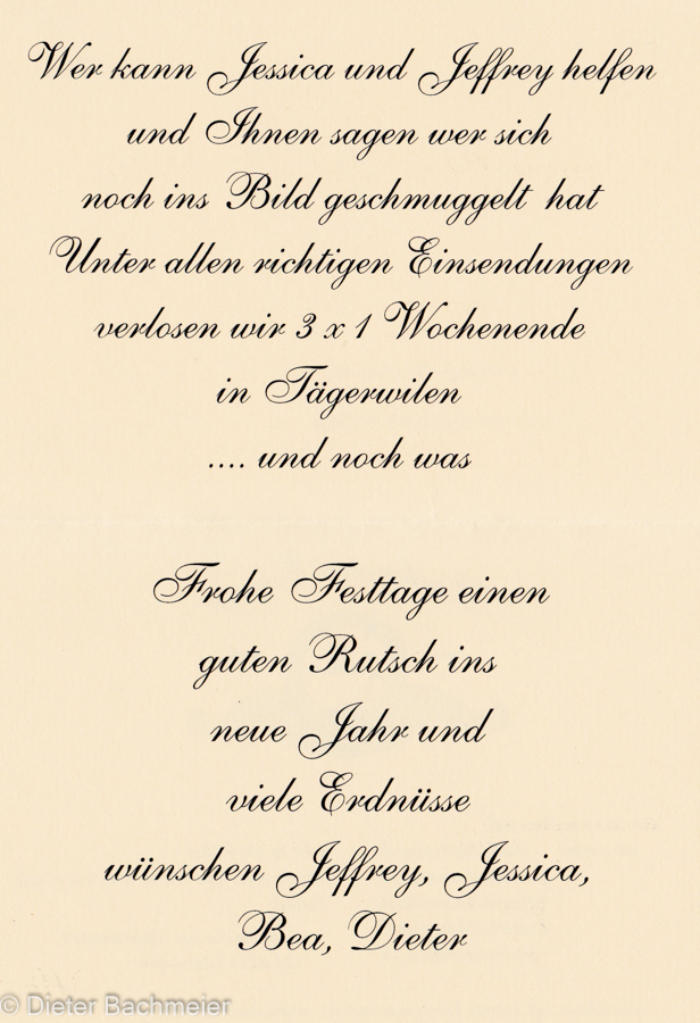 Wer kann Jessica und Jeffrey helfen
und Ihnen sagen wer sich
noch ins Bild geschmuggelt hat
Unter allen richtigen Einsendungen
verlosen wir 3 x 1 Wochenende
in Tägerwilen
.... und noch was
Frohe Festtage einen
guten Rutsch ins
neue Jahr und
viele Erdnüsse
wünschen Jeffrey, Jessica,
Bea, Dieter
© Dieter Bachmeier